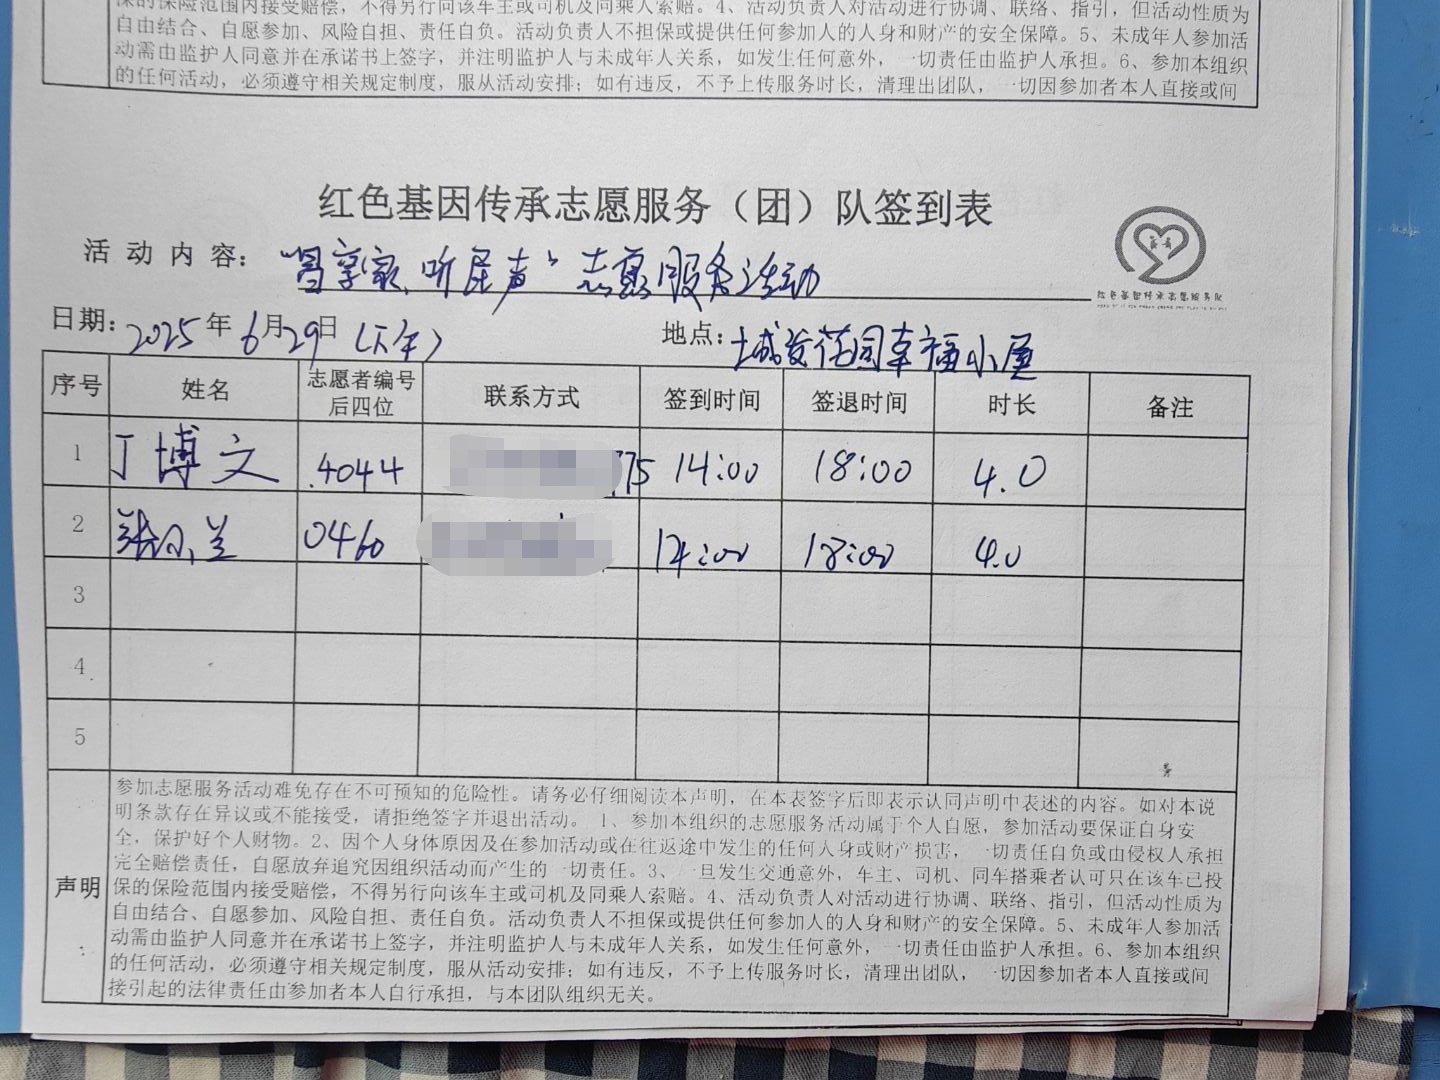 保的保险范围内接受赔偿，不得另行向该车主或司机及同乘人索赔。4、活动负责人对活动进行协调、联络、指引，但活动性质为
自由结合、自愿参加、风险自担、责任自负。活动负责人不担保或提供任何参加人的人身和财产的安全保障。5、未成年人参加活
动需由监护人同意并在承诺书上签字，并注明监护人与未成年人关系，如发生任何意外，一切责任由监护人承担。6、参加本组织
的任何活动，必须遵守相关规定制度，服从活动安排；如有违反，不予上传服务时长，清理出团队，一切因参加者本人直接或间
红色基因传承志愿服务（团）队签到表
活动内容："昌享家，听民声"志愿服务活动
红色基因传承志愿服务队
日期：2025年6月29日（下午） 地点：城发花园幸福小屋
序号 姓名 志愿者编号后四位 联系方式 签到时间 签退时间 时长 备注
1 丁博文 4044 75 14:00 18:00 4.0
2 张 兰 0460 14:00 18:00 4.0
3
4
5
声明：
参加志愿服务活动难免存在不可预知的危险性。请务必仔细阅读本声明，在本表签字后即表示认同声明中表述的内容。如对本说
明条款存在异议或不能接受，请拒绝签字并退出活动。1、参加本组织的志愿服务活动属于个人自愿，参加活动要保证自身安
全，保护好个人财物。2、因个人身体原因及在参加活动或在往返途中发生的任何人身或财产损害，一切责任自负或由侵权人承担
完全赔偿责任，自愿放弃追究因组织活动而产生的一切责任。3、一旦发生交通意外，车主、司机、同车搭乘者认可只在该车已投
保的保险范围内接受赔偿，不得另行向该车主或司机及同乘人索赔。4、活动负责人对活动进行协调、联络、指引，但活动性质为
自由结合、自愿参加、风险自担、责任自负。活动负责人不担保或提供任何参加人的人身和财产的安全保障。5、未成年人参加活
动需由监护人同意并在承诺书上签字，并注明监护人与未成年人关系，如发生任何意外，一切责任由监护人承担。6、参加本组织
的任何活动，必须遵守相关规定制度，服从活动安排；如有违反，不予上传服务时长，清理出团队，一切因参加者本人直接或间
接引起的法律责任由参加者本人自行承担，与本团队组织无关。